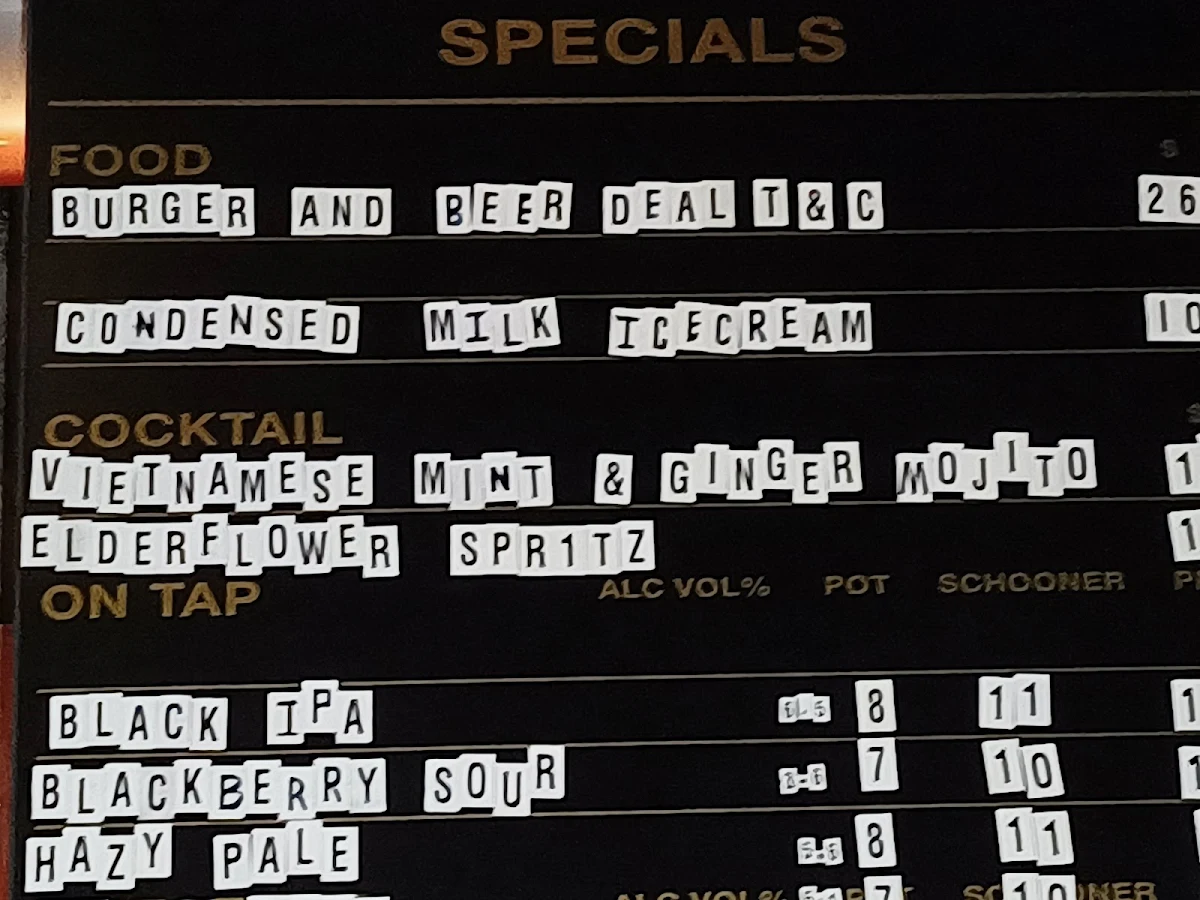 SPECIALS
FOOD $
BURGER AND BEER DEAL T&C 26
CONDENSED MILK ICECREAM 10
COCKTAIL
VIETNAMESE MINT & GINGER MOJITO
ELDERFLOWER SPR1TZ
ON TAP ALC VOL% POT SCHOONER
BLACK IPA 8 11
BLACKBERRY SOUR 7 10
HAZY PALE 8 11
ALC VOL% 7 10